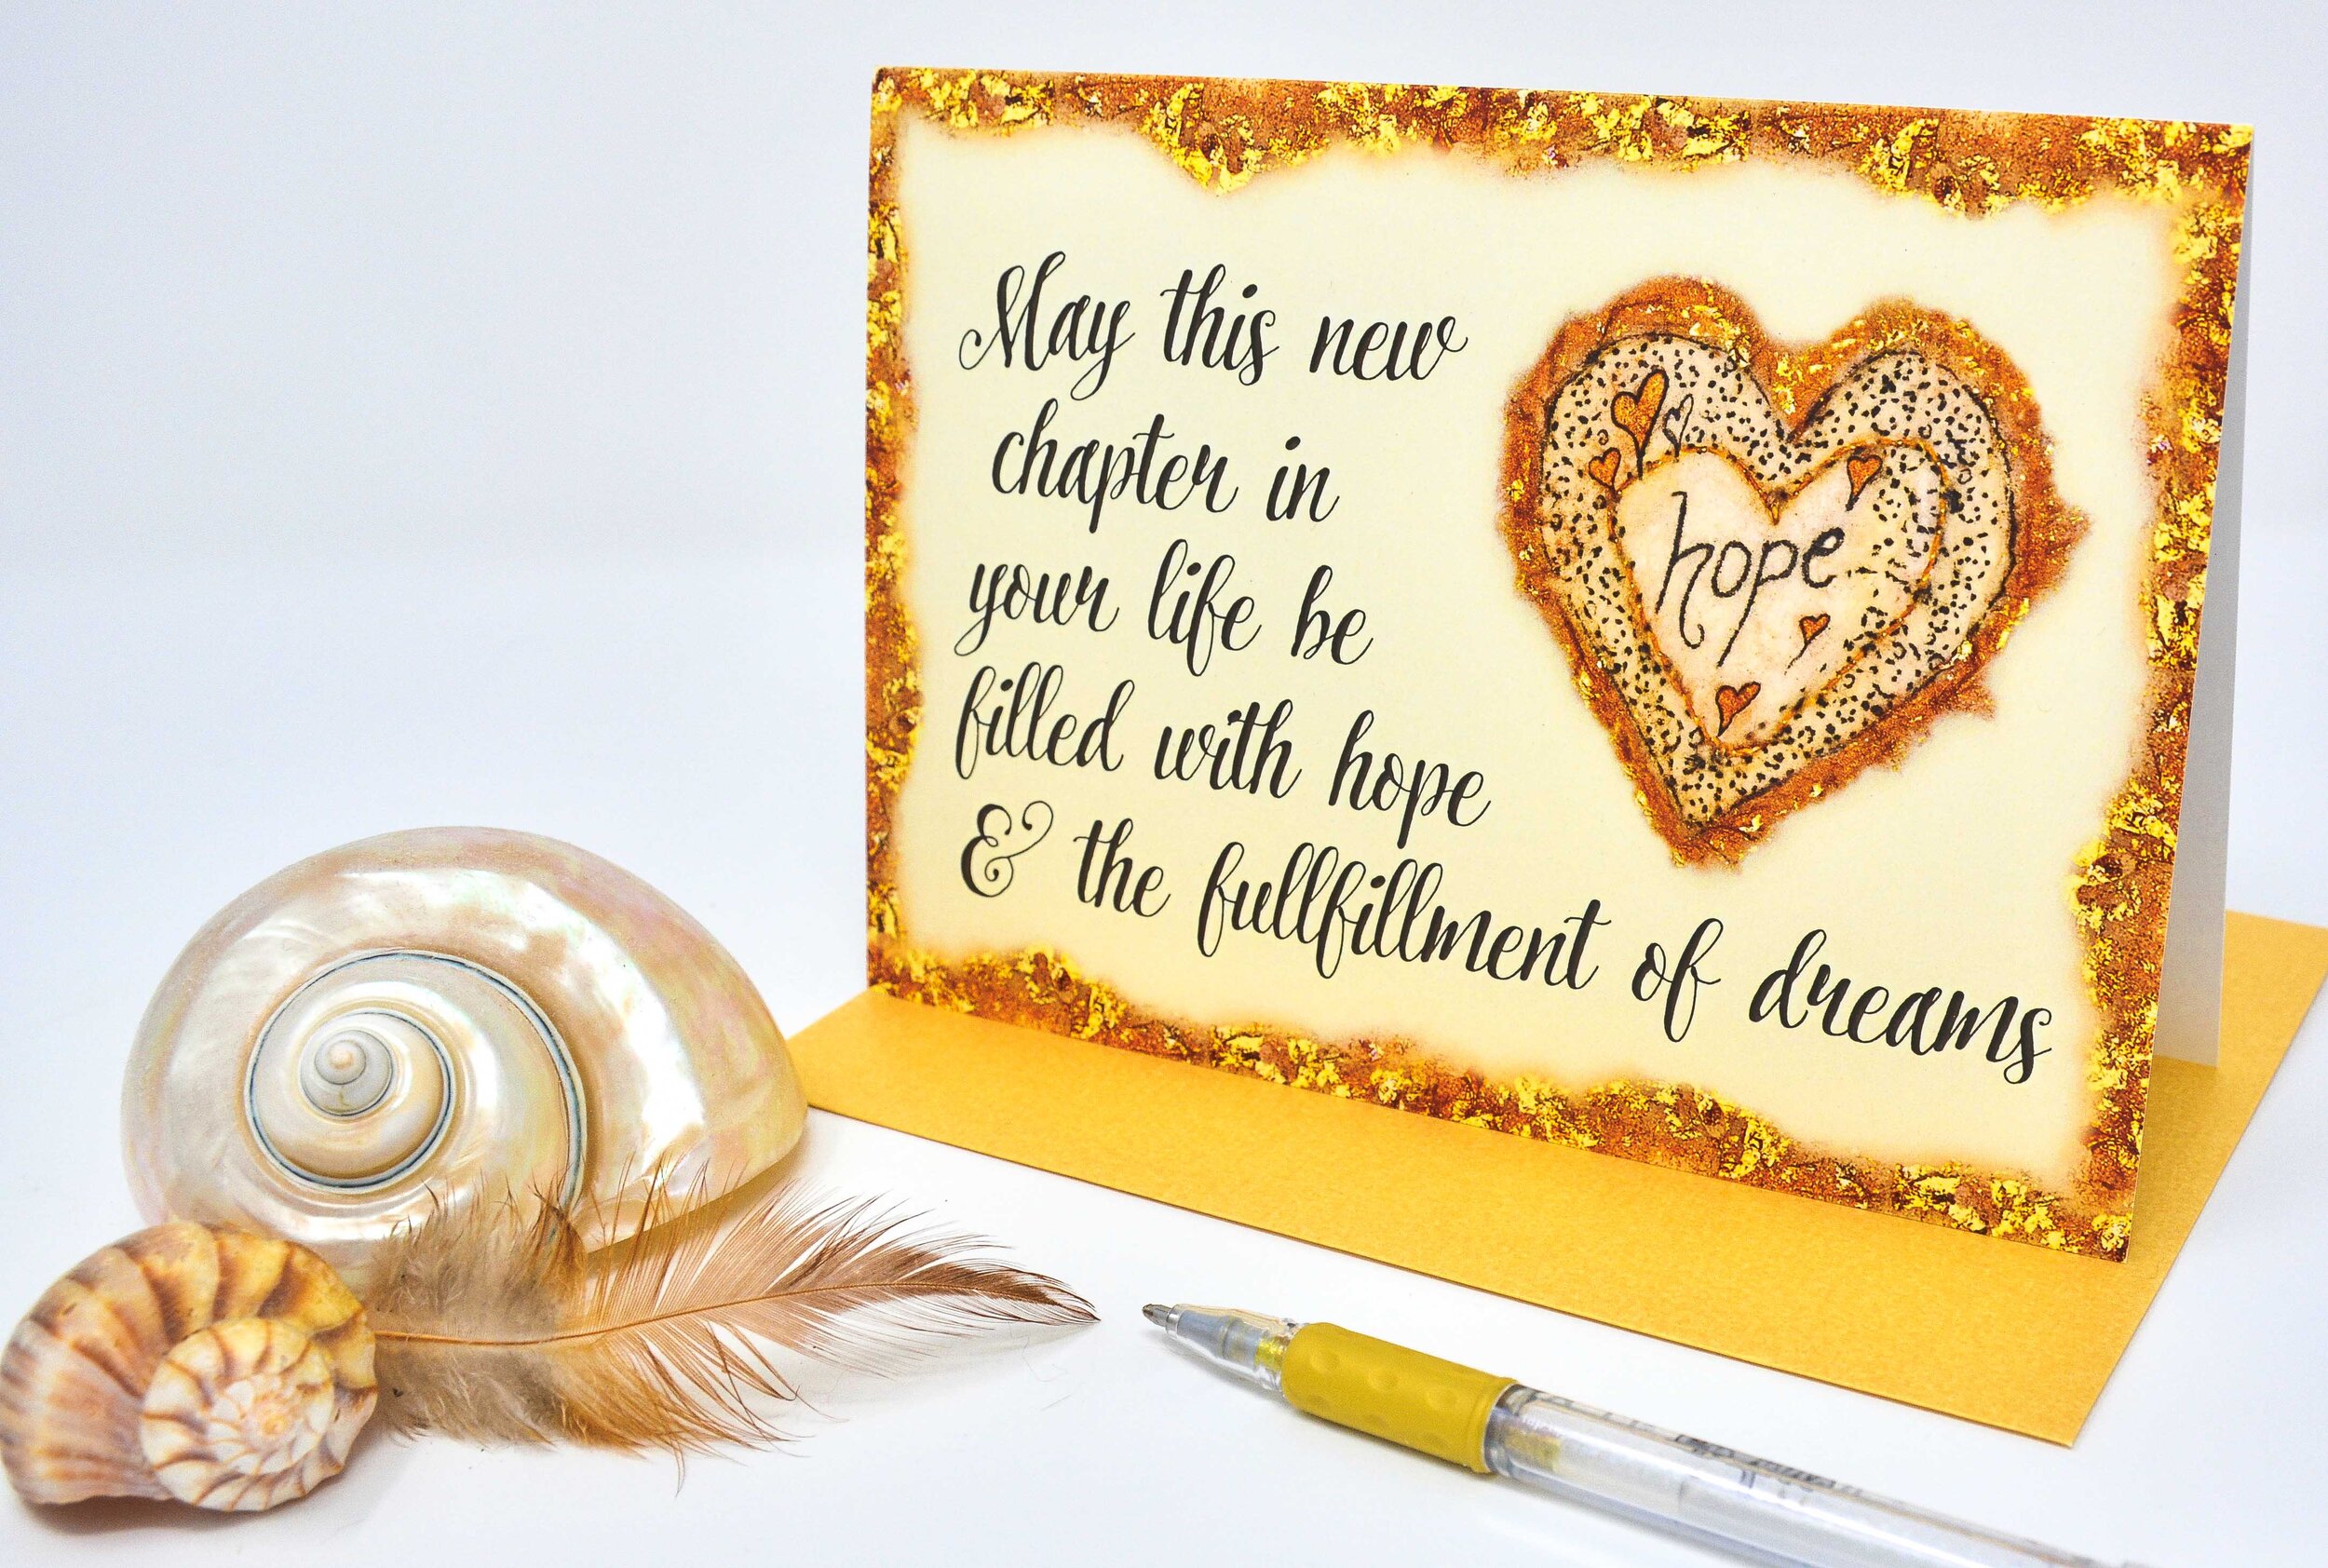 May this new
chapter in
your life be
filled with hope
& the fullfillment of dreams
hope